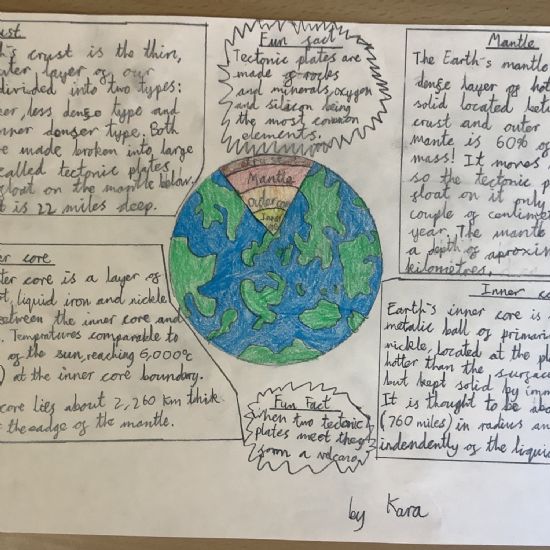 ust
's crust is the thin,
uter layer of our
divided into two types:
er, less dense type and
nner denser type. Both
re made broken into large
called tectonic plates
float on the mantle below.
t is 22 miles deep.
Fun fact
Tectonic plates are
made of rocks
and minerals, oxygen
and silicon being
the most common
elements.
Mantle
The Earth's mantle
dense layer of hot
solid located bet
crust and outer
mante is 60% of
mass! It moves
so the tectonic p
float on it only
couple of centime
year. The mantle
a depth of aproxim
kilometres.
Mantle
Outer core
Inner
er core
ter core is a layer of
t, liquid iron and nickle
between the inner core and
Tempratures comparable to
of the sun, reaching 6,000°c
) at the inner core boundary.
core lies about 2,260 km thik
the eadge of the mantle.
Fun Fact
when two tectonic
plates meet they
form a volcano.
Inner co
Earth's inner core is
metalic ball of primari
nickle, located at the pl
hotter than the surfac
but kept solid by imm
It is thought to be abo
(760 miles) in radius an
indendently of the liquid
by Kara